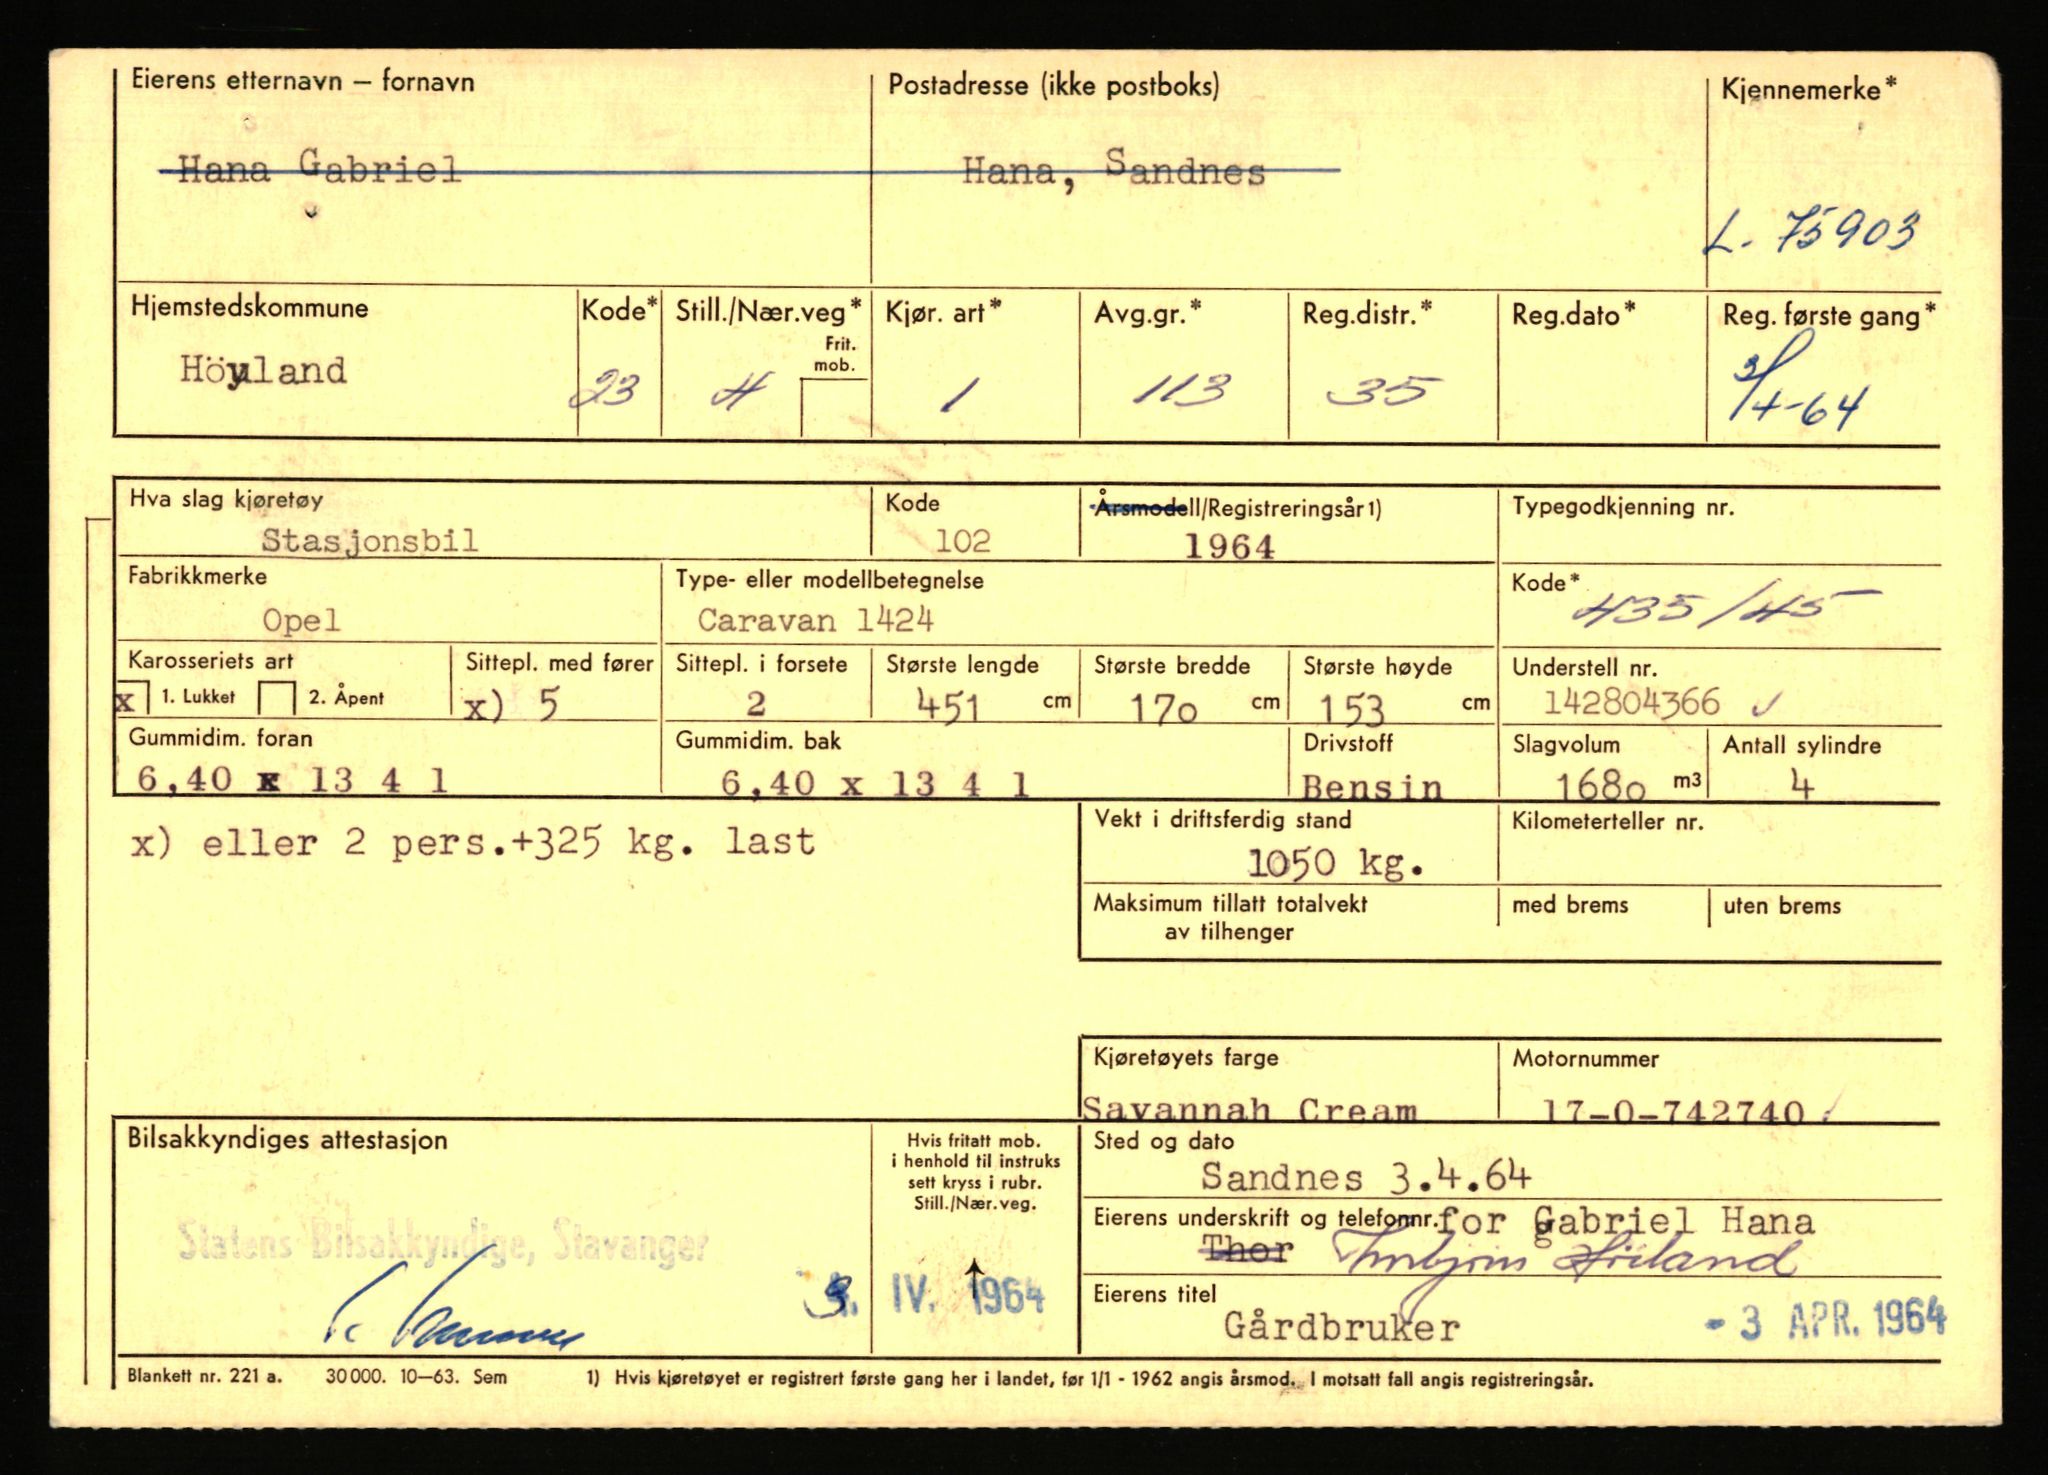 Eierens etternavn — fornavn
Postadresse (ikke postboks)
Kjennemerke*
Hana Gabriel
Hana, Sandnes
L. 75903
Hjemstedskommune
Kode*
Still./Nær.veg*
Frit. mob.
Kjør. art*
Avg.gr.*
Reg.distr.*
Reg.dato*
Reg. første gang*
Höyland
23
H
1
113
35
3/4-64
Hva slag kjøretøy
Kode
Årsmodell/Registreringsår 1)
Typegodkjenning nr.
Stasjonsbil
102
1964
Fabrikkmerke
Type- eller modellbetegnelse
Kode*
Opel
Caravan 1424
435/45
Karosseriets art
Sittepl. med fører
Sittepl. i forsete
Største lengde
Største bredde
Største høyde
Understell nr.
x 1. Lukket 2. Åpent
x) 5
2
451 cm
170 cm
153 cm
142804366
Gummidim. foran
Gummidim. bak
Drivstoff
Slagvolum
Antall sylindre
6,40 x 13 4 1
6,40 x 13 4 1
Bensin
1680 m3
4
x) eller 2 pers.+325 kg. last
Vekt i driftsferdig stand
Kilometerteller nr.
1050 kg.
Maksimum tillatt totalvekt
av tilhenger
med brems
uten brems
Kjøretøyets farge
Motornummer
Savannah Cream
17-0-742740
Bilsakkyndiges attestasjon
Hvis fritatt mob.
i henhold til instruks
sett kryss i rubr.
Still./Nær.veg.
Sted og dato
Sandnes 3.4.64
Statens Bilsakkyndige, Stavanger
Eierens underskrift og telefonnr. for Gabriel Hana
Thor
3. IV. 1964
Eierens titel
Gårdbruker
- 3 APR. 1964
Blankett nr. 221 a. 30 000. 10—63. Sem
1) Hvis kjøretøyet er registrert første gang her i landet, før 1/1 - 1962 angis årsmod. I motsatt fall angis registreringsår.